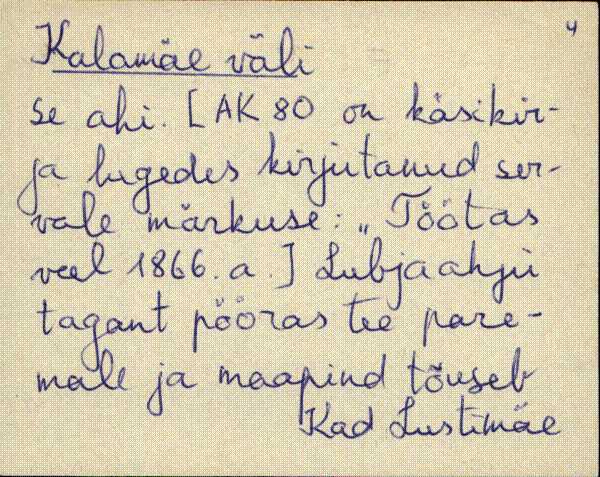 4
Kalamäe väli
se ahi. [AK 80 on käsikir-
ja lugedes kirjutanud ser-
vale märkuse: „Töötas
veel 1866. a.] Lubjaahju
tagant pööras tee pare-
male ja maapind tõuseb
Kad Lustimäe